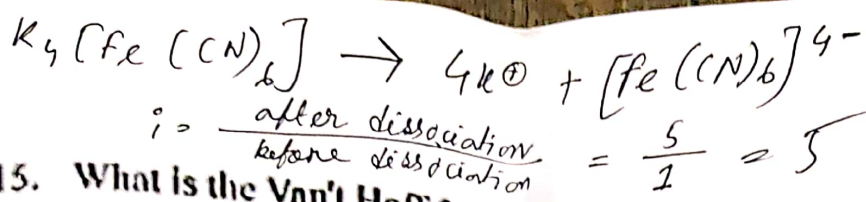 K₄[Fe(CN)₆] → 4K⊕ + [Fe(CN)₆]⁴⁻
i = after dissociation / before dissociation = 5/1 = 5
15. What is the Van't